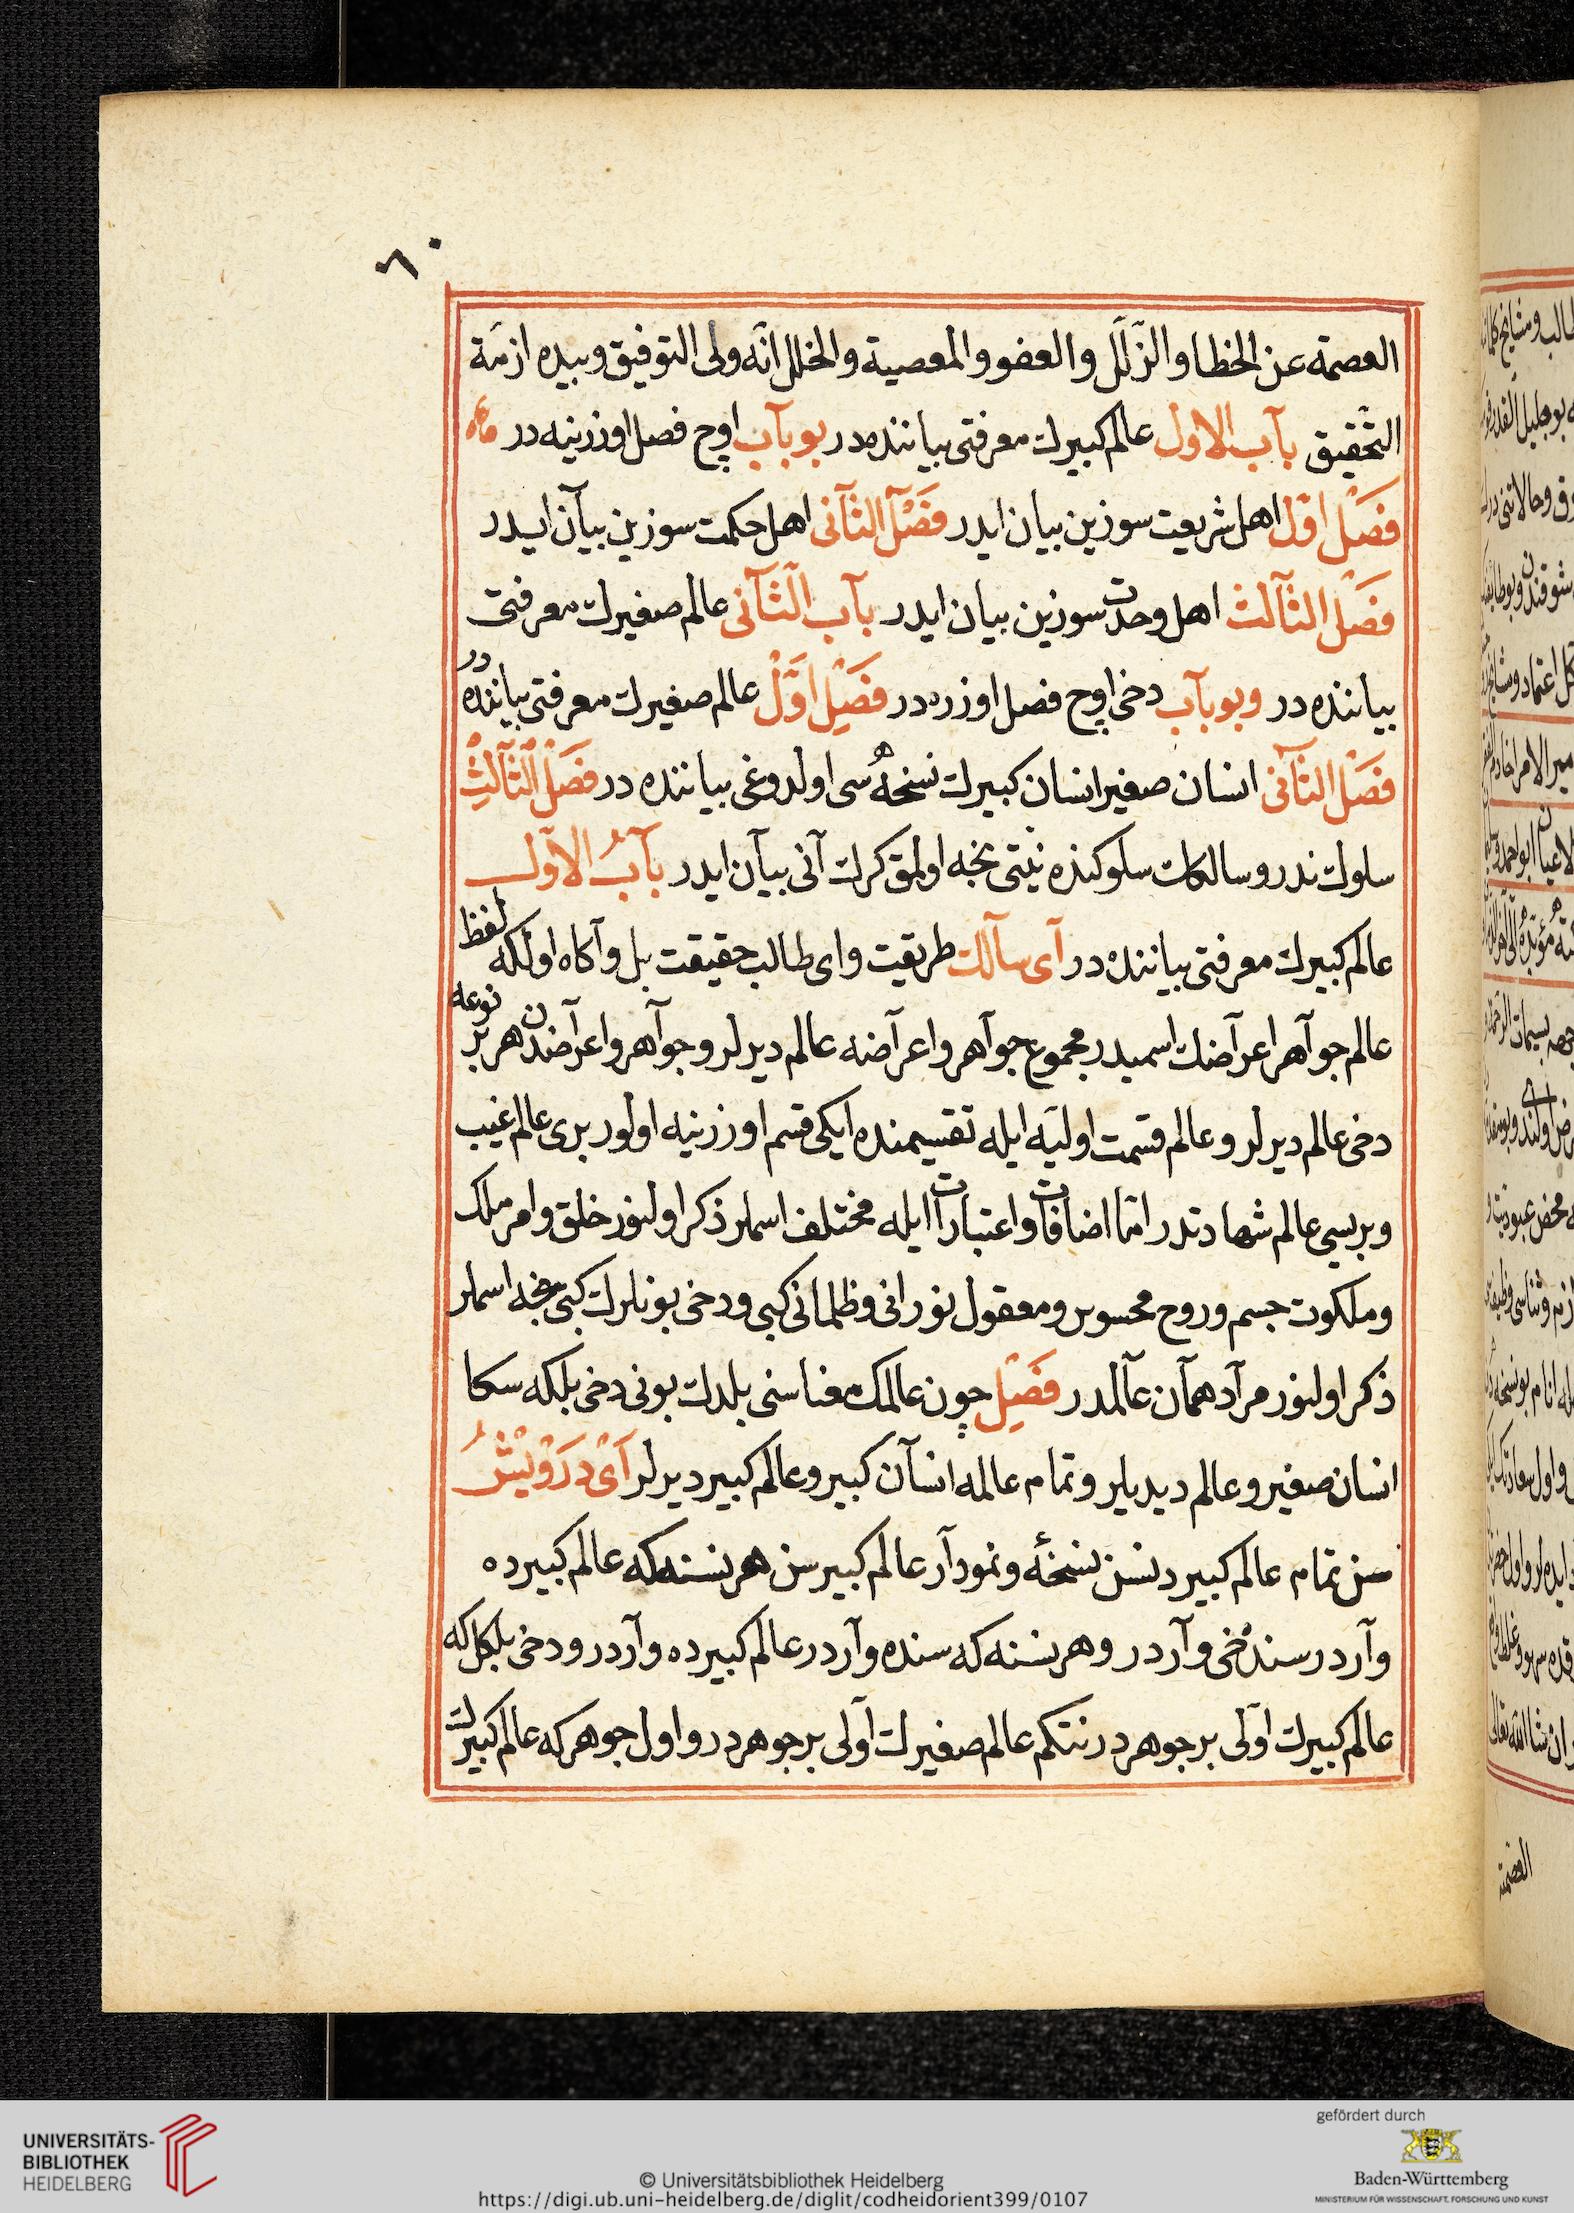 ٦٠
العصمة عن الخطا والزلل والعفو والمعصية والخلل انه ولى التوفيق وبيده ازمة
التحقيق بآب الاول عالم كبيرك معرفتى بياننده در بو بآب اوچ فصل اوزرينه در
فصل اول اهل شريعت سوزين بيان ايدر فصل الثآنى اهل حكمت سوزين بيآن ايدر
فصل الثآلث اهل وحدت سوزين بيان ايدر بآب الثآنى عالم صغيرك معرفتى
بياننده در وبو بآب دخى اوچ فصل اوزره در فصل اول عالم صغيرك معرفتى بياننده در
فصل الثآنى انسان صغير انسان كبيرك نسخه سى اولدوغى بياننده در فصل الثآلث
سلوك ندر وسالكك سلوكنده نيتى نجه اولمق كرك آنى بيآن ايدر بآب الاول
عالم كبيرك معرفتى بياننده در آى سآلك طريقت واى طالب حقيقت بل وآكاه اولكه لفظ
عالم جوآهر اعرآضك اسميدر مجموع جوآهر واعرآضه عالم ديرلر وجوآهر واعرآضدن هر بر نوعه
دخى عالم ديرلر وعالم قسمت اوليه ايله تقسيمنده ايكى قسم اوزرينه اولور برى عالم غيب
وبريسى عالم شهادتدر اما اضافات واعتبارات ايله مختلف اسملر ذكر اولنور خلق وامر ملك
وملكوت جسم وروح محسوس ومعقول نورانى وظلمانى كبى ودخى بونلرك كبى نجه اسملر
ذكر اولنور مرآد همآن عآلمدر فصل چون عالمك معناسنى بلدك بونى دخى بلكه سكا
انسان صغير وعالم ديديلر وتمام عالمه انسآن كبير وعالم كبير ديرلر آى درويش
سن تمام عالم كبيردنسن نسخۀ ونمودآر عالم كبيرسن هر نسنه كه عالم كبيرده
وآردر سنده دخى وآردر وهر نسنه كه سنده وآردر عالم كبيرده وآردر ودخى بلكل كه
عالم كبيرك اولى بر جوهردر نتكم عالم صغيرك آولى بر جوهردر واول جوهر كه عالم كبيرك
العصمة
UNIVERSITÄTS-
BIBLIOTHEK
HEIDELBERG
© Universitätsbibliothek Heidelberg
https://digi.ub.uni-heidelberg.de/diglit/codheidorient399/0107
gefördert durch
Baden-Württemberg
MINISTERIUM FÜR WISSENSCHAFT, FORSCHUNG UND KUNST